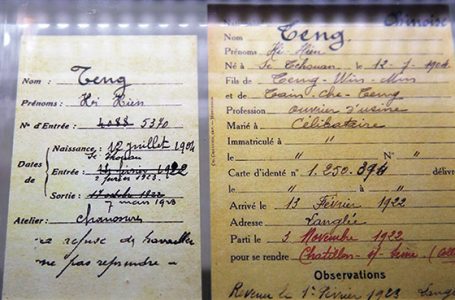 Nom : Teng
Prénoms : Hi Hien
N° d'Entrée : 4088 5370
Naissance : 12 juillet 1904
Se Tchouan
Dates de
Entrée : 1922
2 février 1923
Sortie : 17 octobre 1922
7 mars 1923
Atelier : Chaussure
a refusé de travailler
ne pas reprendre —
Chinoise
Nom Teng
Prénoms Hi Hien
Né à Se Tchouan le 12-7-1904
Fils de Teng-Win-Min
et de Tam-Che-Teng
Profession ouvrier d'usine
Marié à Célibataire
Immatriculé à "
le " N°
Carte d'identité n° 1.250.394
le " à "
Arrivé le 13 Février 1922
Adresse Langlée
Parti le 3 Novembre 1922
pour se rendre Châtillon-s/-Seine
Observations
Revenu le 1er Février 1923